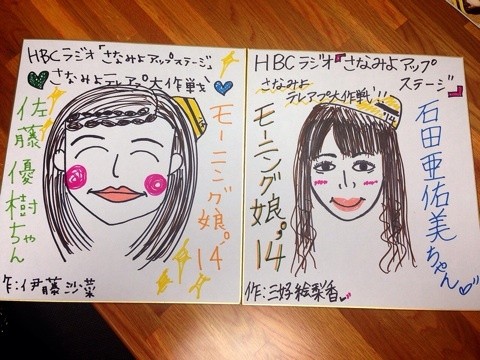 HBCラジオ「さなみよアップステージ」
さなみよテレアプ大作戦
佐藤優樹ちゃん
モーニング娘。'14
作:伊藤沙菜
HBCラジオ「さなみよアップ
ステージ」
さなみよ
テレアプ大作戦!!
モーニング娘。'14
石田亜佑美ちゃん
作:三好絵梨香